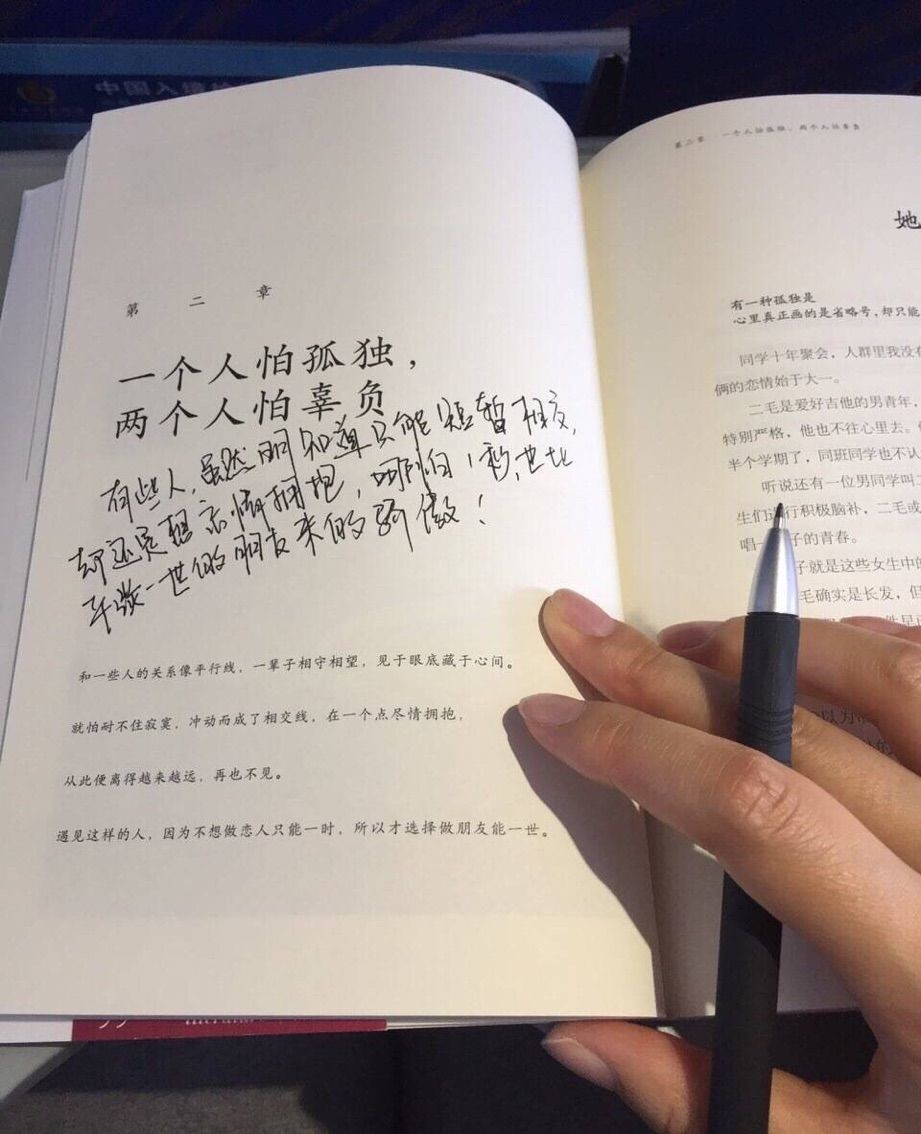 中国人
第二章 一个人怕孤独，两个人怕辜负
第二章
一个人怕孤独，
两个人怕辜负
有些人，虽然明知道只能短暂相交，
却还是想尽情拥抱，哪怕1秒，也比
做一世的朋友来的骄傲！
和一些人的关系像平行线，一辈子相守相望，见于眼底藏于心间。
就怕耐不住寂寞，冲动而成了相交线，在一个点尽情拥抱，
从此便离得越来越远，再也不见。
遇见这样的人，因为不想做恋人只能一时，所以才选择做朋友能一世。
她
有一种孤独是
心里真正画的是省略号，却只能
同学十年聚会，人群里我没有
俩的恋情始于大一。
二毛是爱好吉他的男青年，
特别严格，他也不往心里去。
半个学期了，同班同学也不认
听说还有一位男同学叫二
生们进行积极脑补，二毛或
唱一 子的青春。
子就是这些女生中的
毛确实是长发，但
以为